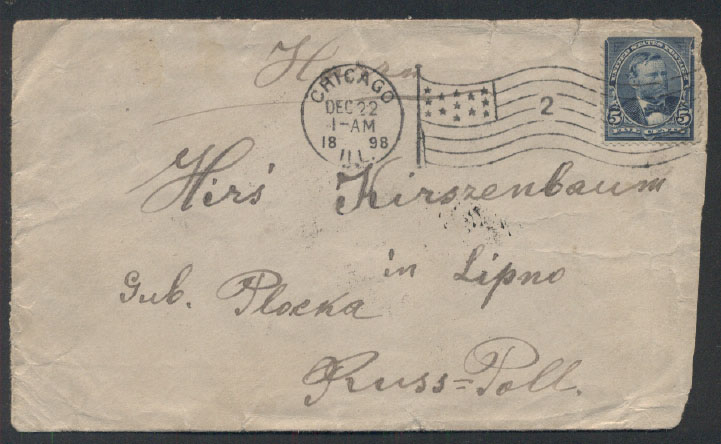 Herrn
UNITED STATES POSTAGE
5 5
FIVE CENTS
CHICAGO
DEC 22
1-AM
18 98
ILL.
2
Hirs Kirszenbaum
in Lipno
Gub. Plocka
Russ=Poll.